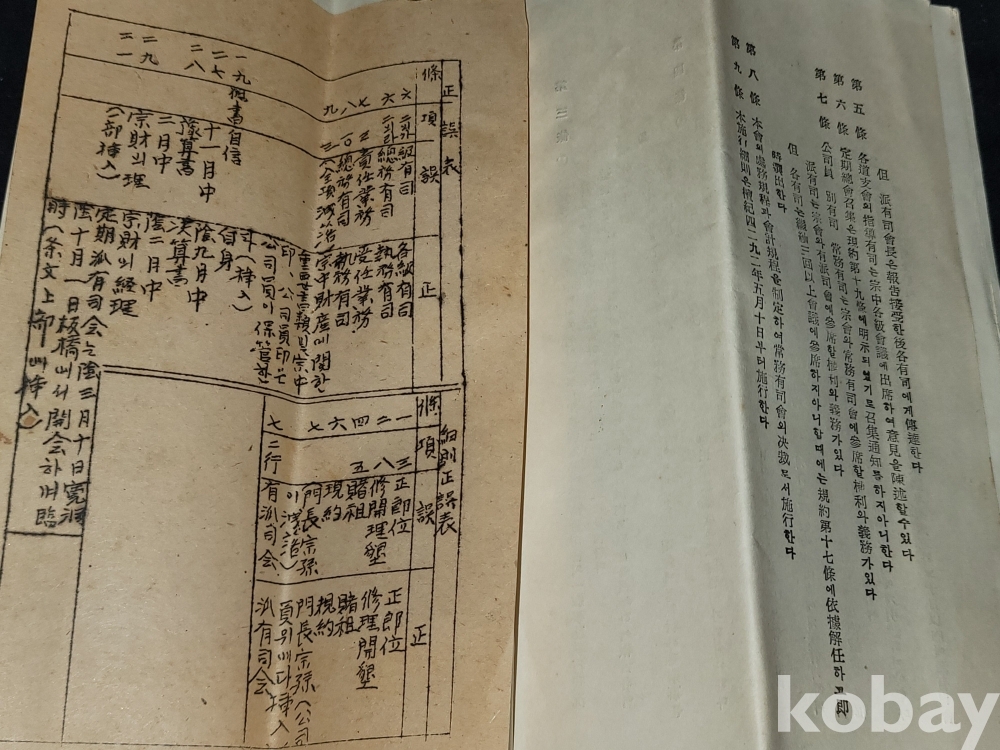 但 派有司會長은報告接受한後各有司에게傳達한다
第五條 各道支會의指導有司은宗中各級會議에出席하여意見을陳述할수있다
第六條 定期總會召集은規約第十九條에明示되였기로召集通知를하지아니한다
第七條 公司員 別有司 常務有司는宗會와常務有司會에參席할權利와義務가있다
派有司는宗會와有派司會에參席할權利와義務가있다
但 各有司는繼續三回以上會議에參席하지아니할때에는規約第十七條에依據解任하고即
時選出한다
第八條 本會의處務規程과會計規程을制定하여常務有司會의決裁로서施行한다
第九條 本施行細則은檀紀四二九二年五月十日부터施行한다
正誤表
條 項 誤 正
六 各級有司
六 總務有司 執務有司
七 責任業務 受任業務
八 總務有司 執務有司
九 宗中財産에関한
公司員이保管한
一九 自信 自身
二七 十一月中 陰九月中
二八 豫算書 决算書
二月中 陰二月中
二九 宗財의理 宗財의經理
定期派有司会는陰三月十日
陰十月一日板橋에서開会하며臨
時(条文上部에挿入)
細則正誤表
條 項 誤 正
一 三 正郎位 正郎位
二 八 修開理墾 修理開墾
四 五 賭租 賭租
六 現約 規約
七 門長宗孫 門長宗孫(公司
員위에다挿入)
七 二行 有派司会 派有司会
kobay